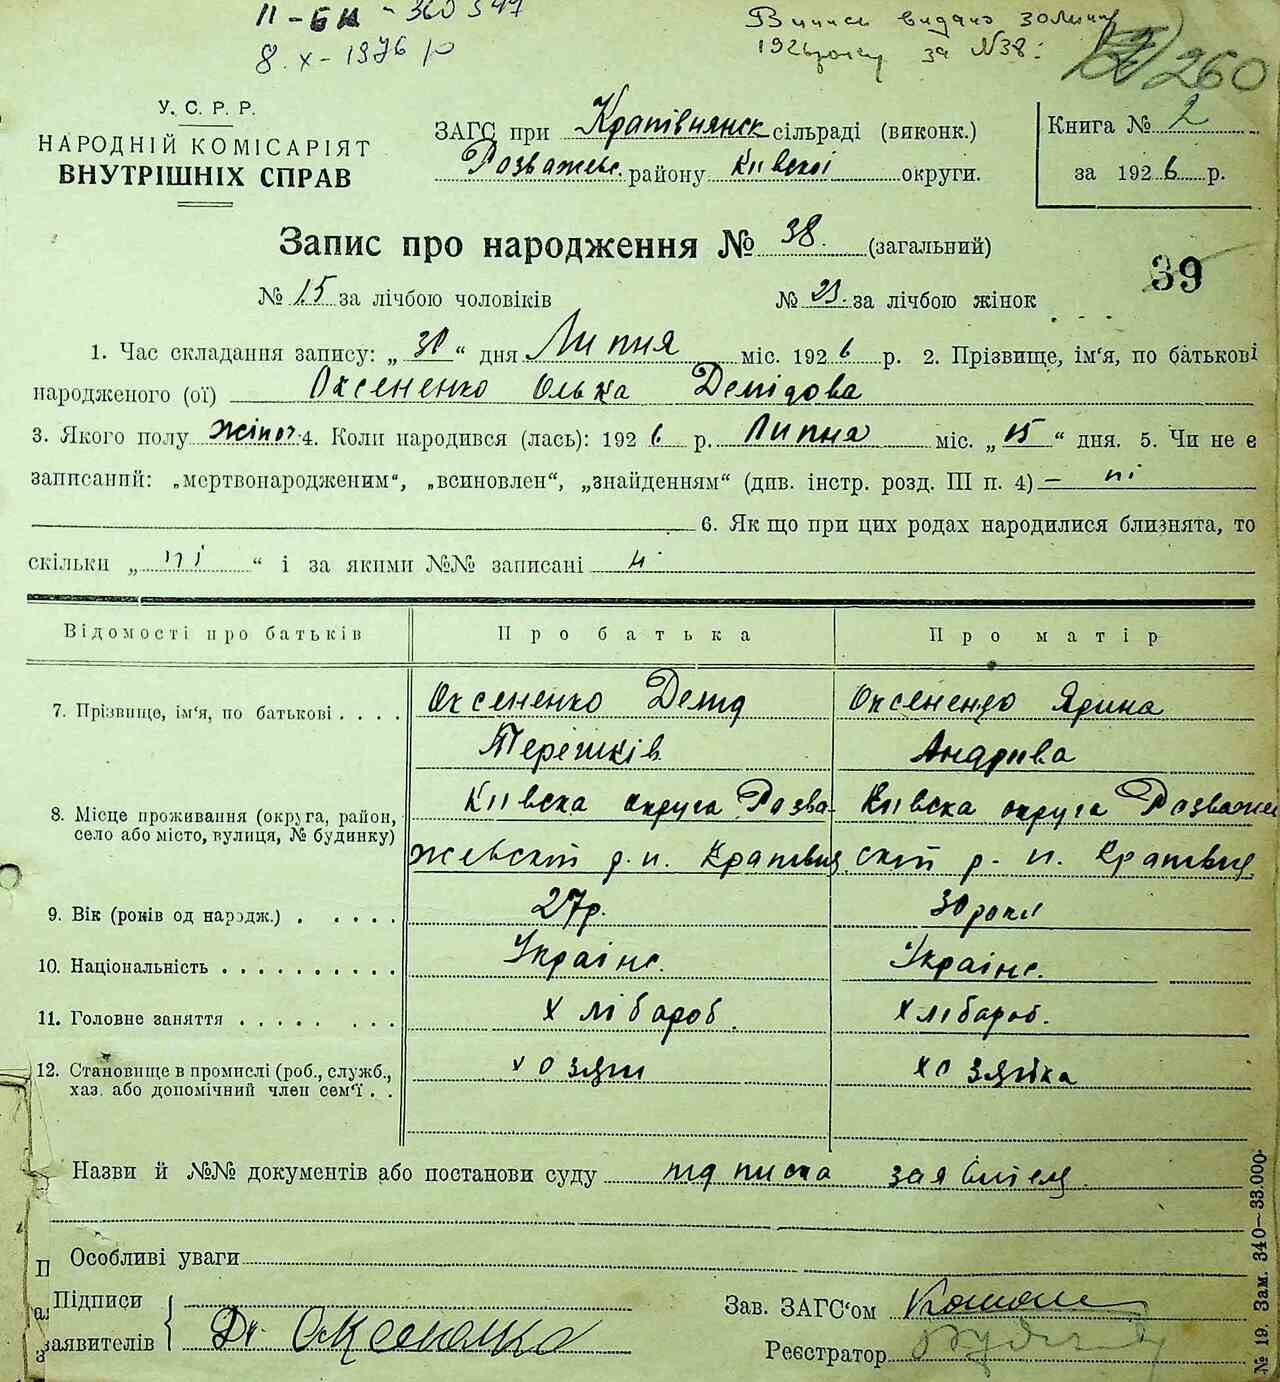 ІІ-БК - 360347
8. X - 1976 р
Випись видано 30 липня
1926 року за №38.
260
У. С. Р. Р.
НАРОДНІЙ КОМІСАРІЯТ
ВНУТРІШНІХ СПРАВ
ЗАГС при Крапівнянск сільраді (виконк.)
Розважевс. району Київскої округи.
Книга № 2
за 1926 р.
Запис про народження № 38. (загальний)
39
№ 15 за лічбою чоловіків № 23. за лічбою жінок
1. Час складання запису: „30“ дня Липня міс. 1926 р. 2. Прізвище, ім'я, по батькові
народженого (ої) Оксененко Олька Демідова
3. Якого полу жіноч. 4. Коли народився (лась): 1926 р. Липня міс. „15“ дня. 5. Чи не є
записаний: „мертвонародженим“, „всиновлен“, „знайденням“ (див. інстр. розд. III п. 4) — ні
6. Як що при цих родах народилися близнята, то
скільки „ні“ і за якими №№ записані н
Відомості про батьків Про батька Про матір
7. Прізвище, ім'я, по батькові . . . . Оксененко Демід Оксененко Ярина
Терешків. Андріива
8. Місце проживання (округа, район, село або місто, вулиця, № будинку) Київска округа Розва- Київска округа Розважев
жевский р. н. Крапивня ский р. н. Крапивня
9. Вік (років од народж.) . . . . . 27р. 30 роки
10. Національність . . . . . . . . . . Українс. Українс.
11. Головне заняття . . . . . . . . Хлібароб. Хлібароб.
12. Становище в промислі (роб., служб., хозяин хозяйка
хаз. або допомічний член сем'ї . .
Назви й №№ документів або постанови суду підписка заявителя
Особливі уваги
Підписи
заявителів Дк. Оксененко
Зав. ЗАГС'ом
Реєстратор
№ 19. Зам. 340—33.000.